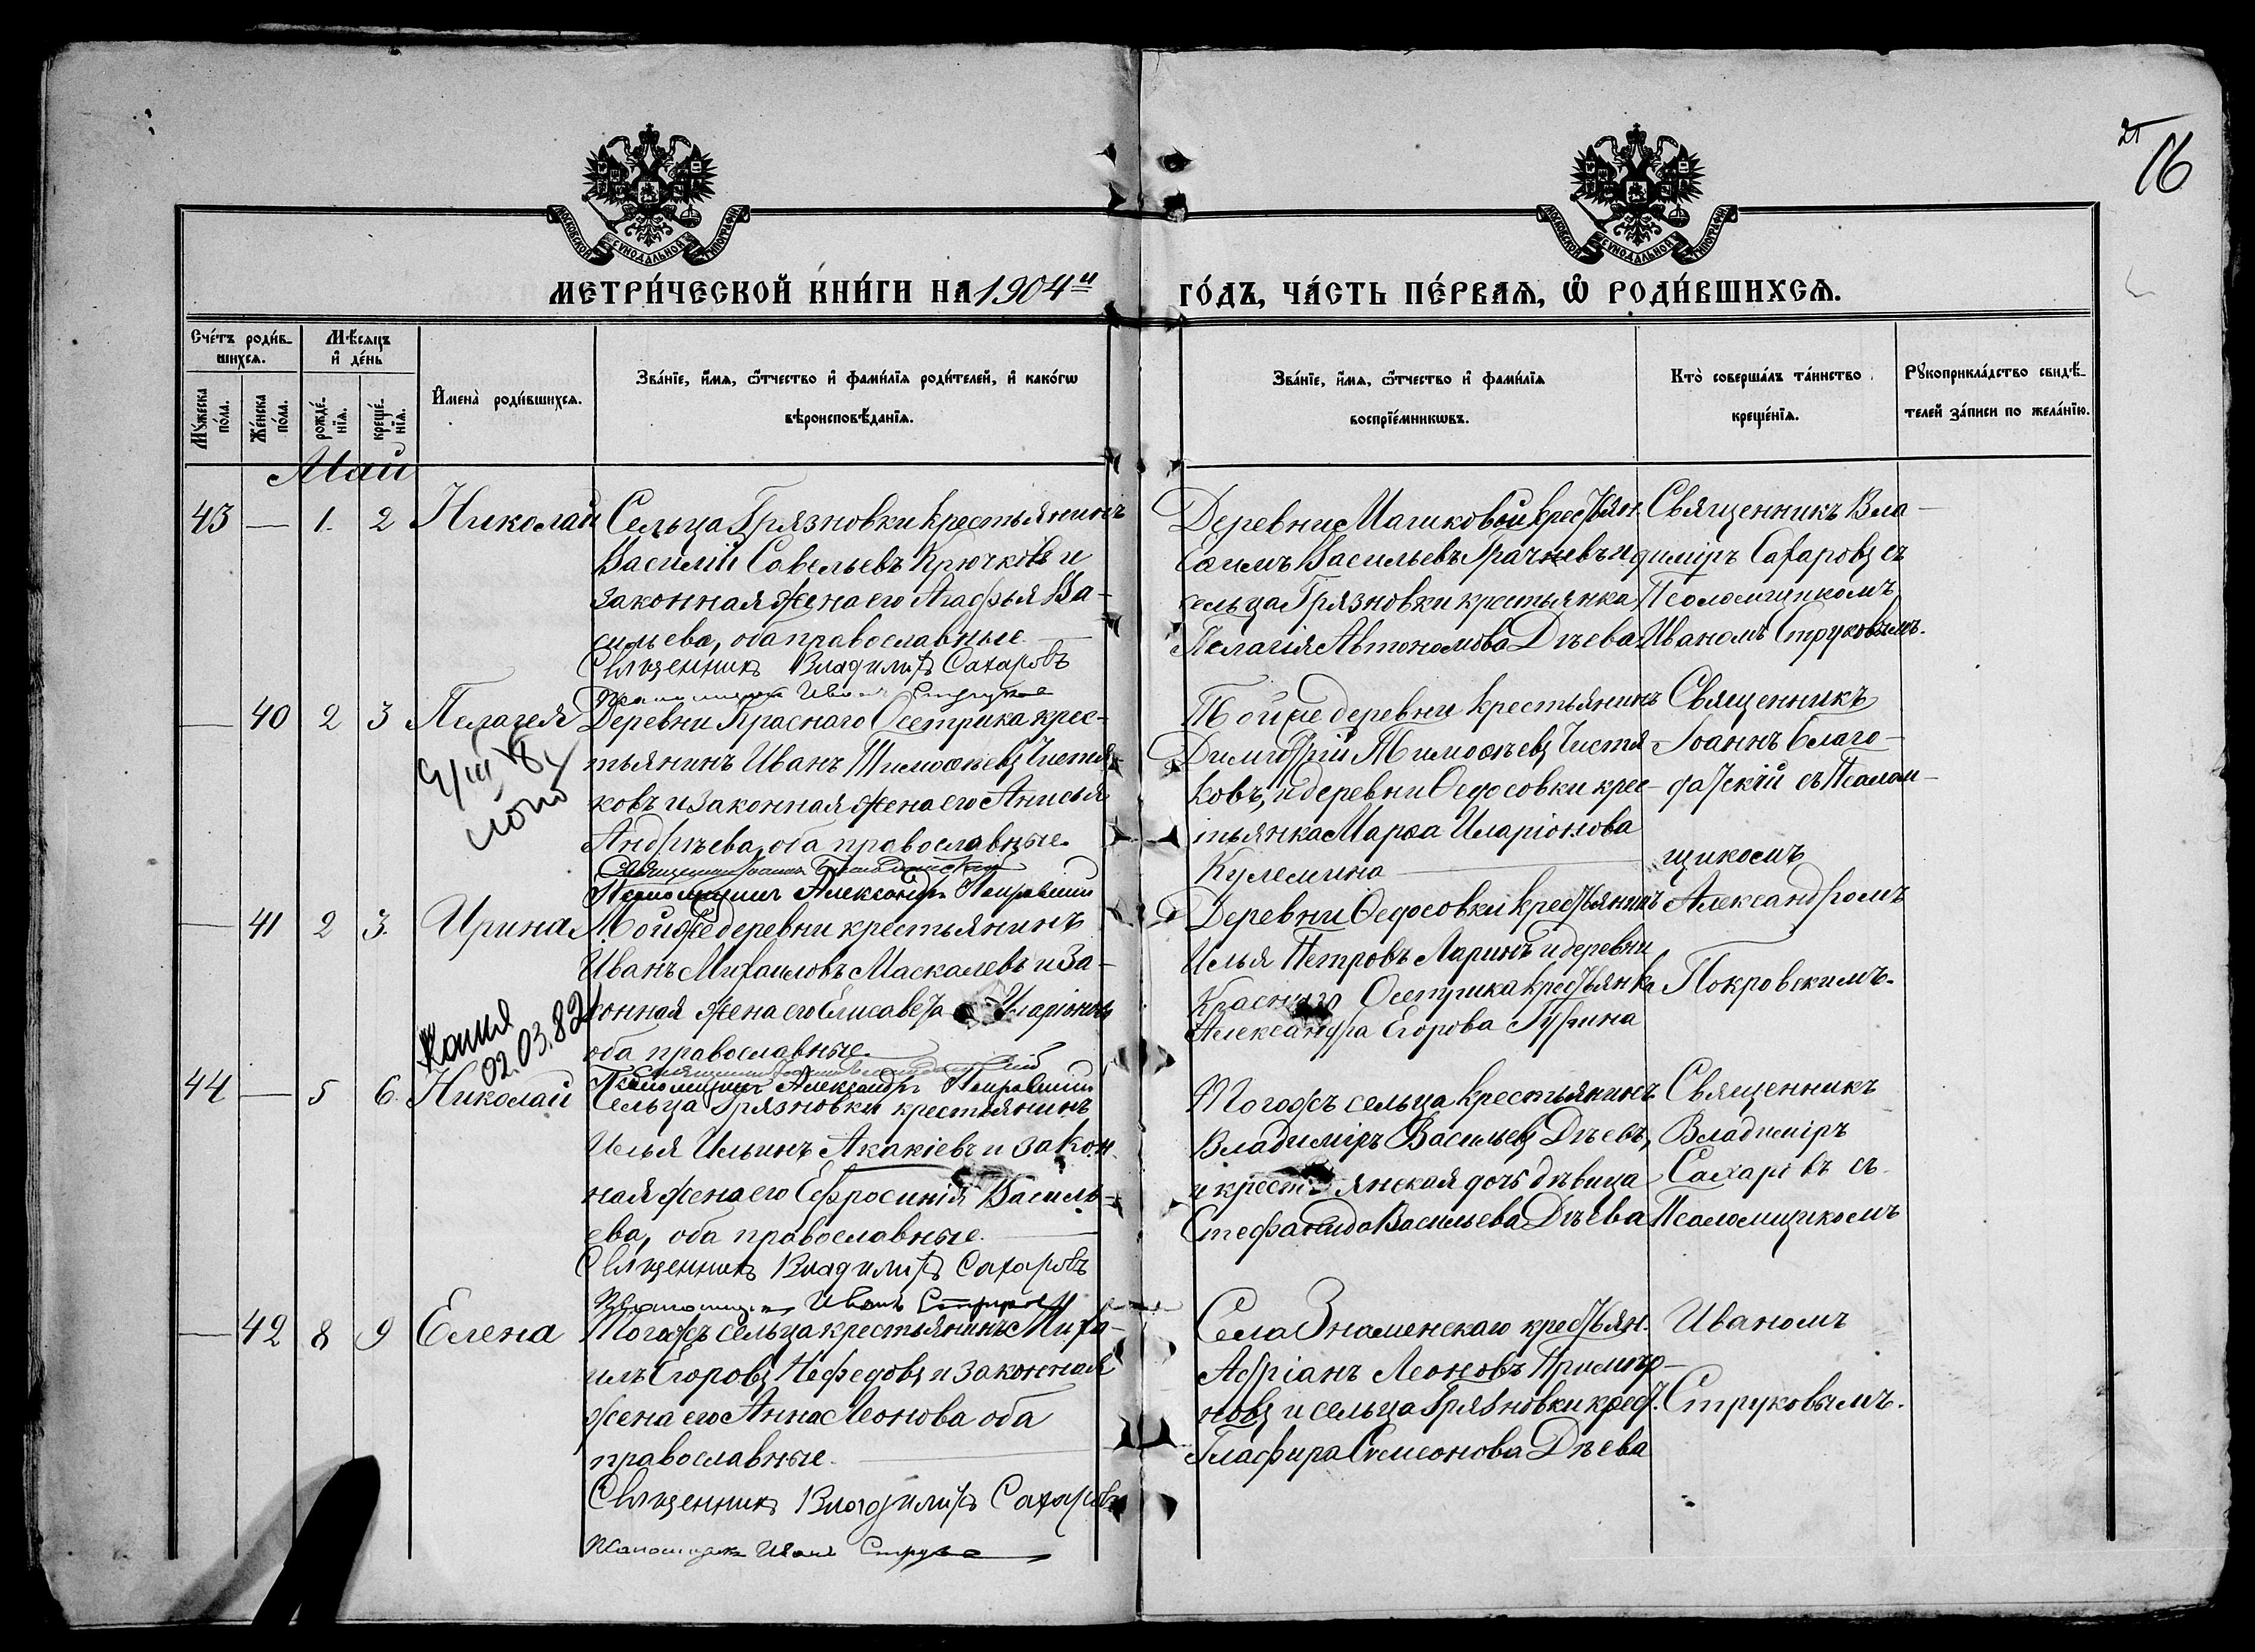 21
16
МОСКОВСКОЙ СѴНОДАЛЬНОЙ ТИПОГРАФІИ
МОСКОВСКОЙ СѴНОДАЛЬНОЙ ТИПОГРАФІИ
МЕТРИ́ЧЕСКОЙ КНИ́ГИ НА 1904й ГО́ДЪ, ЧА́СТЬ ПЕ́РВАѦ, Ѡ҆ РОДИ́ВШИХСѦ.
Сче́тъ роди́в-
шихсѧ.
Мꙋ́жеска по́ла.
Же́нска по́ла.
Мѣ́сѧцъ
и҆ де́нь
рожде́-
нїѧ.
креще́-
нїѧ.
И҆мена̀ роди́вшихсѧ.
Зва́нїе, и҆́мѧ, ѻ҆́тчество и҆ фами́лїѧ роди́телей, и҆ како́гѡ
вѣроисповѣ́данїѧ.
Зва́нїе, и҆́мѧ, ѻ҆́тчество и҆ фами́лїѧ
воспрїе́мникѡвъ.
Кто̀ соверша́лъ та́инство
креще́нїѧ.
Рꙋкоприкла́дство свидѣ́-
телей за́писи по жела́нїю.
Май
43 — 1. 2 Николай
Сельца Грязновки крестьянинъ
Василій Савельевъ Крючковъ и
законная жена его Агафья Ва-
сильева, оба православные
Священникъ Владиміръ Сахаровъ
Псаломщикъ Иванъ Струковъ
Деревни Машковой крестьян.
Еѳимъ Васильевъ Грачневъ и
сельца Грязновки крестьянка
Пелагія Автономова Дѣева
Священникъ Вла-
диміръ Сахаровъ съ
Псаломщикомъ
Иваномъ Струковымъ.
— 40 2 3 Пелагея
Деревни Краснаго Осетрика крес-
тьянинъ Иванъ Тимоѳѣевъ Чистя-
ковъ и законная жена его Анисья
Андрѣева, оба православные.
Священникъ Іоаннъ Благодатскій
Псаломщикъ Александръ Покровскій
Той же деревни крестьянинъ
Димитрій Тимоѳѣевъ Чистя-
ковъ, и деревни Ѳедосовки крес-
тьянка Марѳа Иларіонова
Кулемина
Священникъ
Іоаннъ Благо-
датскій съ Псалом-
щикомъ
Александромъ
Покровскимъ.
— 41 2 3. Ирина
Той же деревни крестьянинъ
Иванъ Михаиловъ Маскалевъ и за-
конная жена его Елисавета Иларіонова
оба православные.
Псаломщикъ Александръ Покровскій
Копия
02.03.82
Деревни Ѳедосовки крестьянинъ
Илья Петровъ Ларинъ и деревни
Краснаго Осетрика крестьянка
Александра Егорова Гурина
44 — 5 6. Николай
Сельца Грязновки крестьянинъ
Илья Ильинъ Акакіевъ и закон-
ная жена его Ефросинія Василь-
ева, оба православные.
Священникъ Владиміръ Сахаровъ
Псаломщикъ Иванъ Струковъ
Того жъ сельца крестьянинъ
Владиміръ Васильевъ Дѣевъ,
и крестьянская дочь дѣвица
Стефанида Васильева Дѣева
Священникъ
Владиміръ
Сахаровъ съ
Псаломщикомъ
Иваномъ
Струковымъ.
— 42 8 9 Елена
Того жъ сельца крестьянинъ Миха-
илъ Егоровъ Нефедовъ и законная
жена его Анна Леонова оба
православные.
Священникъ Владиміръ Сахаровъ
Псаломщикъ Иванъ Струковъ
Села Знаменскаго крестьян.
Адріанъ Леоновъ
новъ и сельца Грязновки крест.
Глафира Симеонова Дѣева